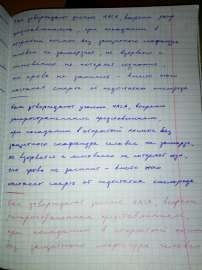 Как утверждают учёные НАСА, вопреки
распространённому представлению, при попадании в
открытый космос без защитного скафандра
человек не замёрзнет, не взорвётся и
мгновенно не потеряет сознание,
его кровь не закипит - вместо этого
наступит смерть от недостатка кислорода
Как утверждают учёные НАСА, вопреки
распространённому представлению,
при попадании в открытый космос без
защитного скафандра человек не замёрзнет,
не взорвётся и мгновенно не потеряет
его кровь не закипит - вместо этого
наступит смерть от недостатка кислорода
Как утверждают учёные НАСА, вопреки
распространённому представлению,
при попадании в открытый
защитного скафандра человек